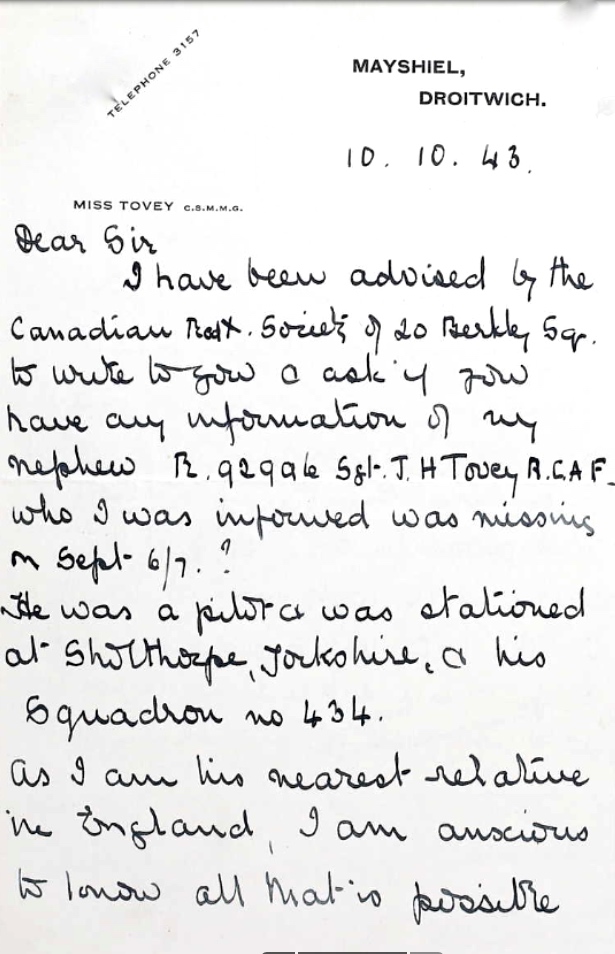 TELEPHONE 3157
MAYSHIEL,
DROITWICH.
10. 10. 43.
MISS TOVEY C.S.M.M.G.
Dear Sir
I have been advised by the
Canadian Red X. Society of 20 Berkly Sq.
to write to you & ask if you
have any information of my
nephew R. 92996 Sgt. J. H Tovey R.C.A.F.
who I was informed was missing
on Sept 6/7. ?
He was a pilot & was stationed
at Sholthorpe, Yorkshire, & his
Squadron no 434.
As I am his nearest relative
in England, I am anxious
to know all that is possible